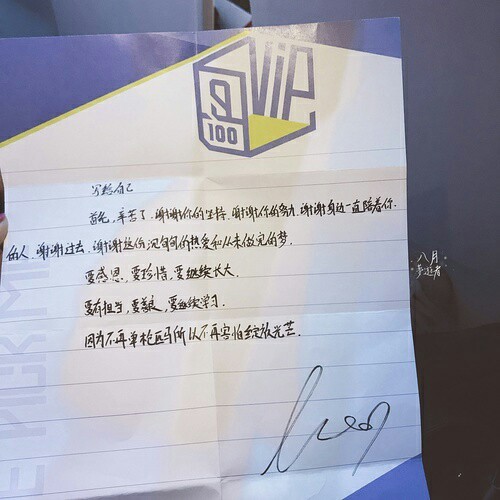 VIP
9
100
写给自己
首先,辛苦了.谢谢你的坚持.谢谢你的努力.谢谢身边一直陪着你
的人.谢谢过去.谢谢这份沉甸甸的热爱和从未做完的梦.
要感恩,要珍惜,要继续长大.
要有担当,要狠,要继续学习.
因为不再单枪匹马所以不再害怕绽放光芒.
八月
梦游者
PICK ME